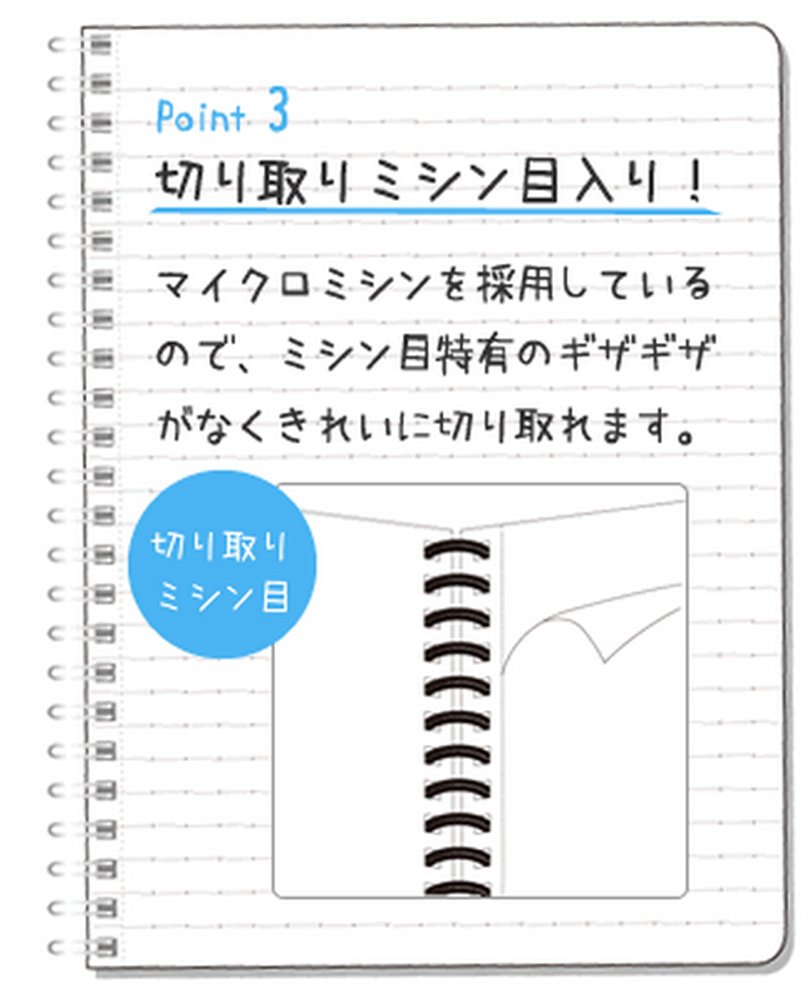 Point 3
切り取りミシン目入り！
マイクロミシンを採用している
ので、ミシン目特有のギザギザ
がなくきれいに切り取れます。
切り取り
ミシン目